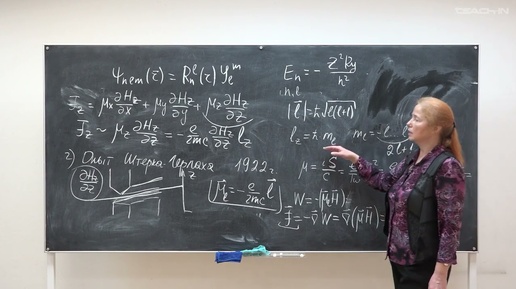 TEACH-IN
Ψnem(r̄) = Rₙˡ(r) Yₑᵐ
Fz = μx ∂Hz/∂x + μy ∂Hz/∂y + μz ∂Hz/∂z
Fz ~ μz ∂Hz/∂z = - e/2mc ∂Hz/∂z lz
2) Опыт Штерна-Герлаха 1922 г.
∂Hz/∂z
z
μ⃗ₑ = - e/2mc l⃗
Eₙ = - Z²Ry/n²
n, l
|l⃗| = ħ√l(l+1)
lz = ħ mₑ
mₑ = -l...l
2l+1
μ = iS/c =
W = -(μ⃗H⃗)
F⃗ = -∇⃗W = ∇⃗(μ⃗H⃗) =